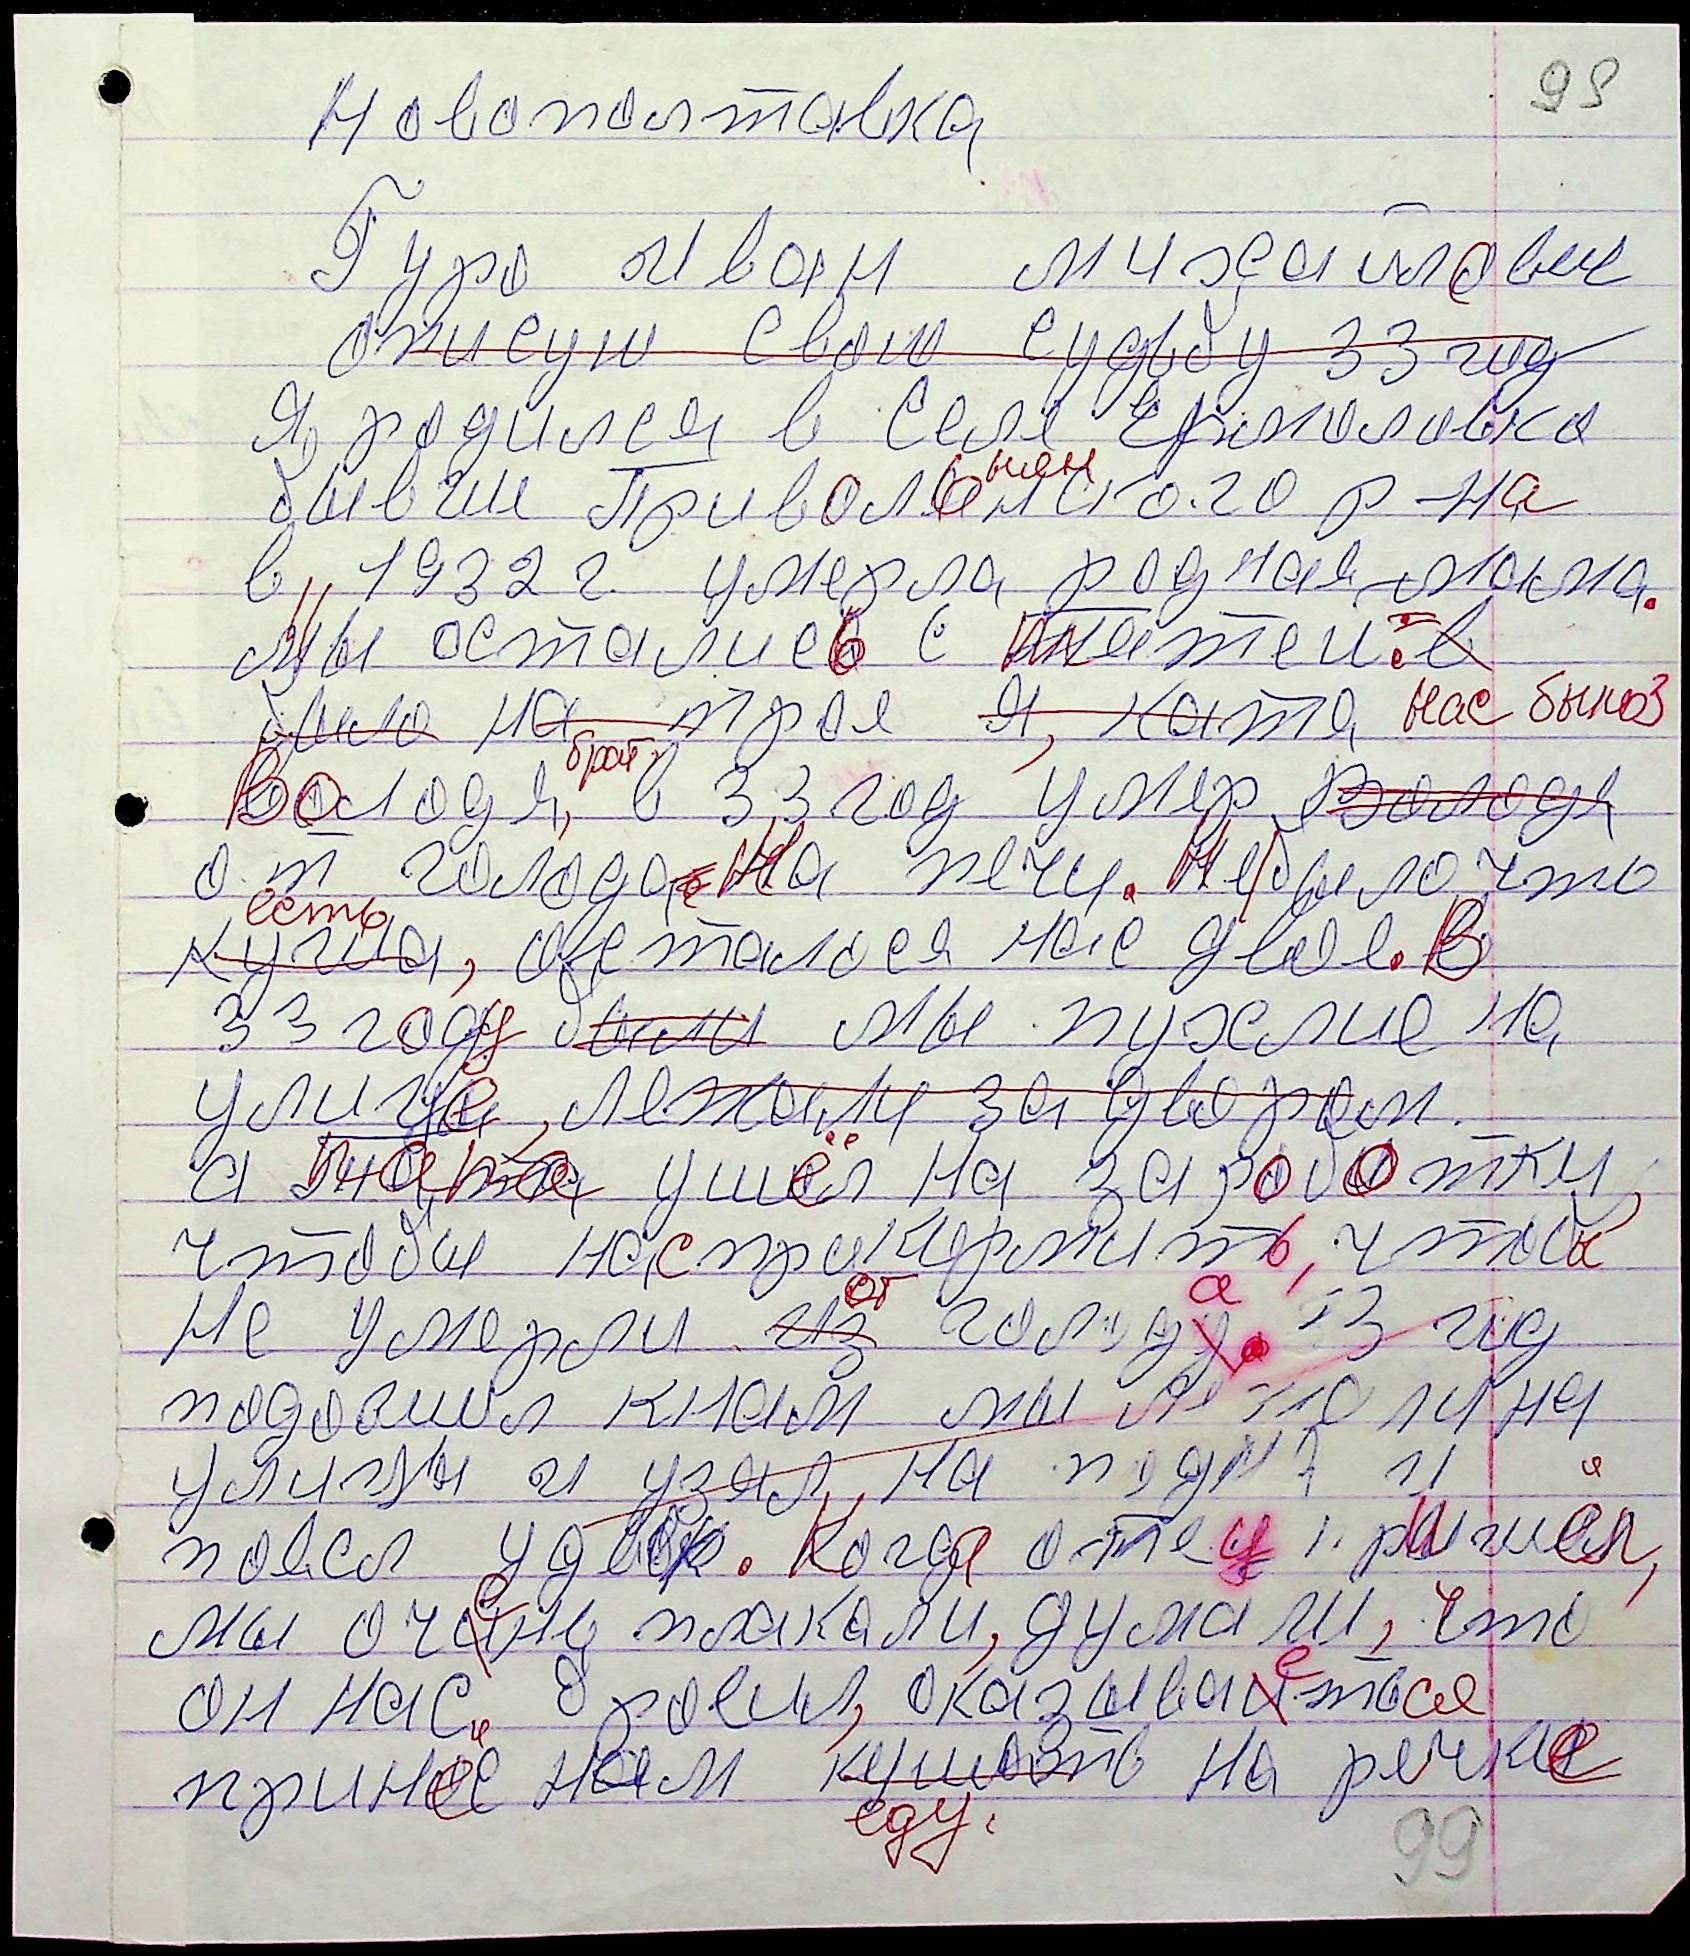 98
Новополтавка
Гуро Иван Михайлович
описую свою судьбу 33 год
Я родился в селе Ермоловка
бывши Привольнянского р-на
в 1932 г. умерла родная мама.
Мы остались с тятей: в
было на трое я, катя, нас было 3
Володя, брат в 33 год умер Володя
от голода На печи. Не было что
есть
кушa, осталося нас двое. В
33 году были мы пухлие на
улице, лежали за двором.
а тятя ушёл на заработки,
чтобы нас прикармить, чтобы
от а
не умерли из голоду. 33 год
подошол кнам мы лежали на
улицы и узял на и
повел удвор. Когда отец пришёл,
мы очень плакали, думали, что
он нас. бросил, оказывается
принёс нам кушать на речке
еду.
99